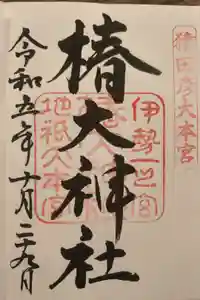 猿田彦大本宮
伊勢一之宮
椿大神社
地祇大本宮
令和五年十月二十九日